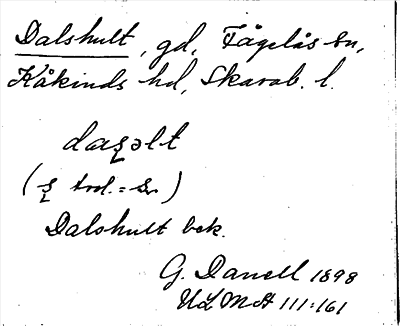 Dalshult, gd, Fågelås sn,
Kåkinds hd, Skarab. l.
daȿəlt
(ȿ trol. = sr)
Dalshult bek.
G. Danell 1898
ULMA 111:161